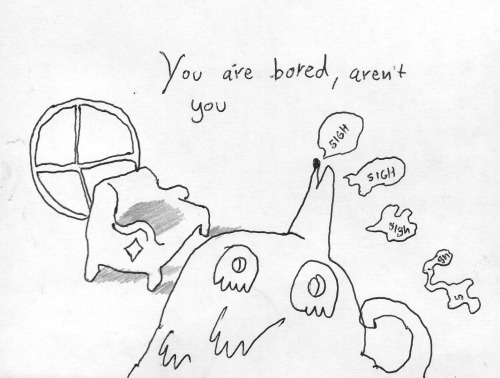 You are bored, aren't
you
SIGH
SIGH
sigh
gh
si